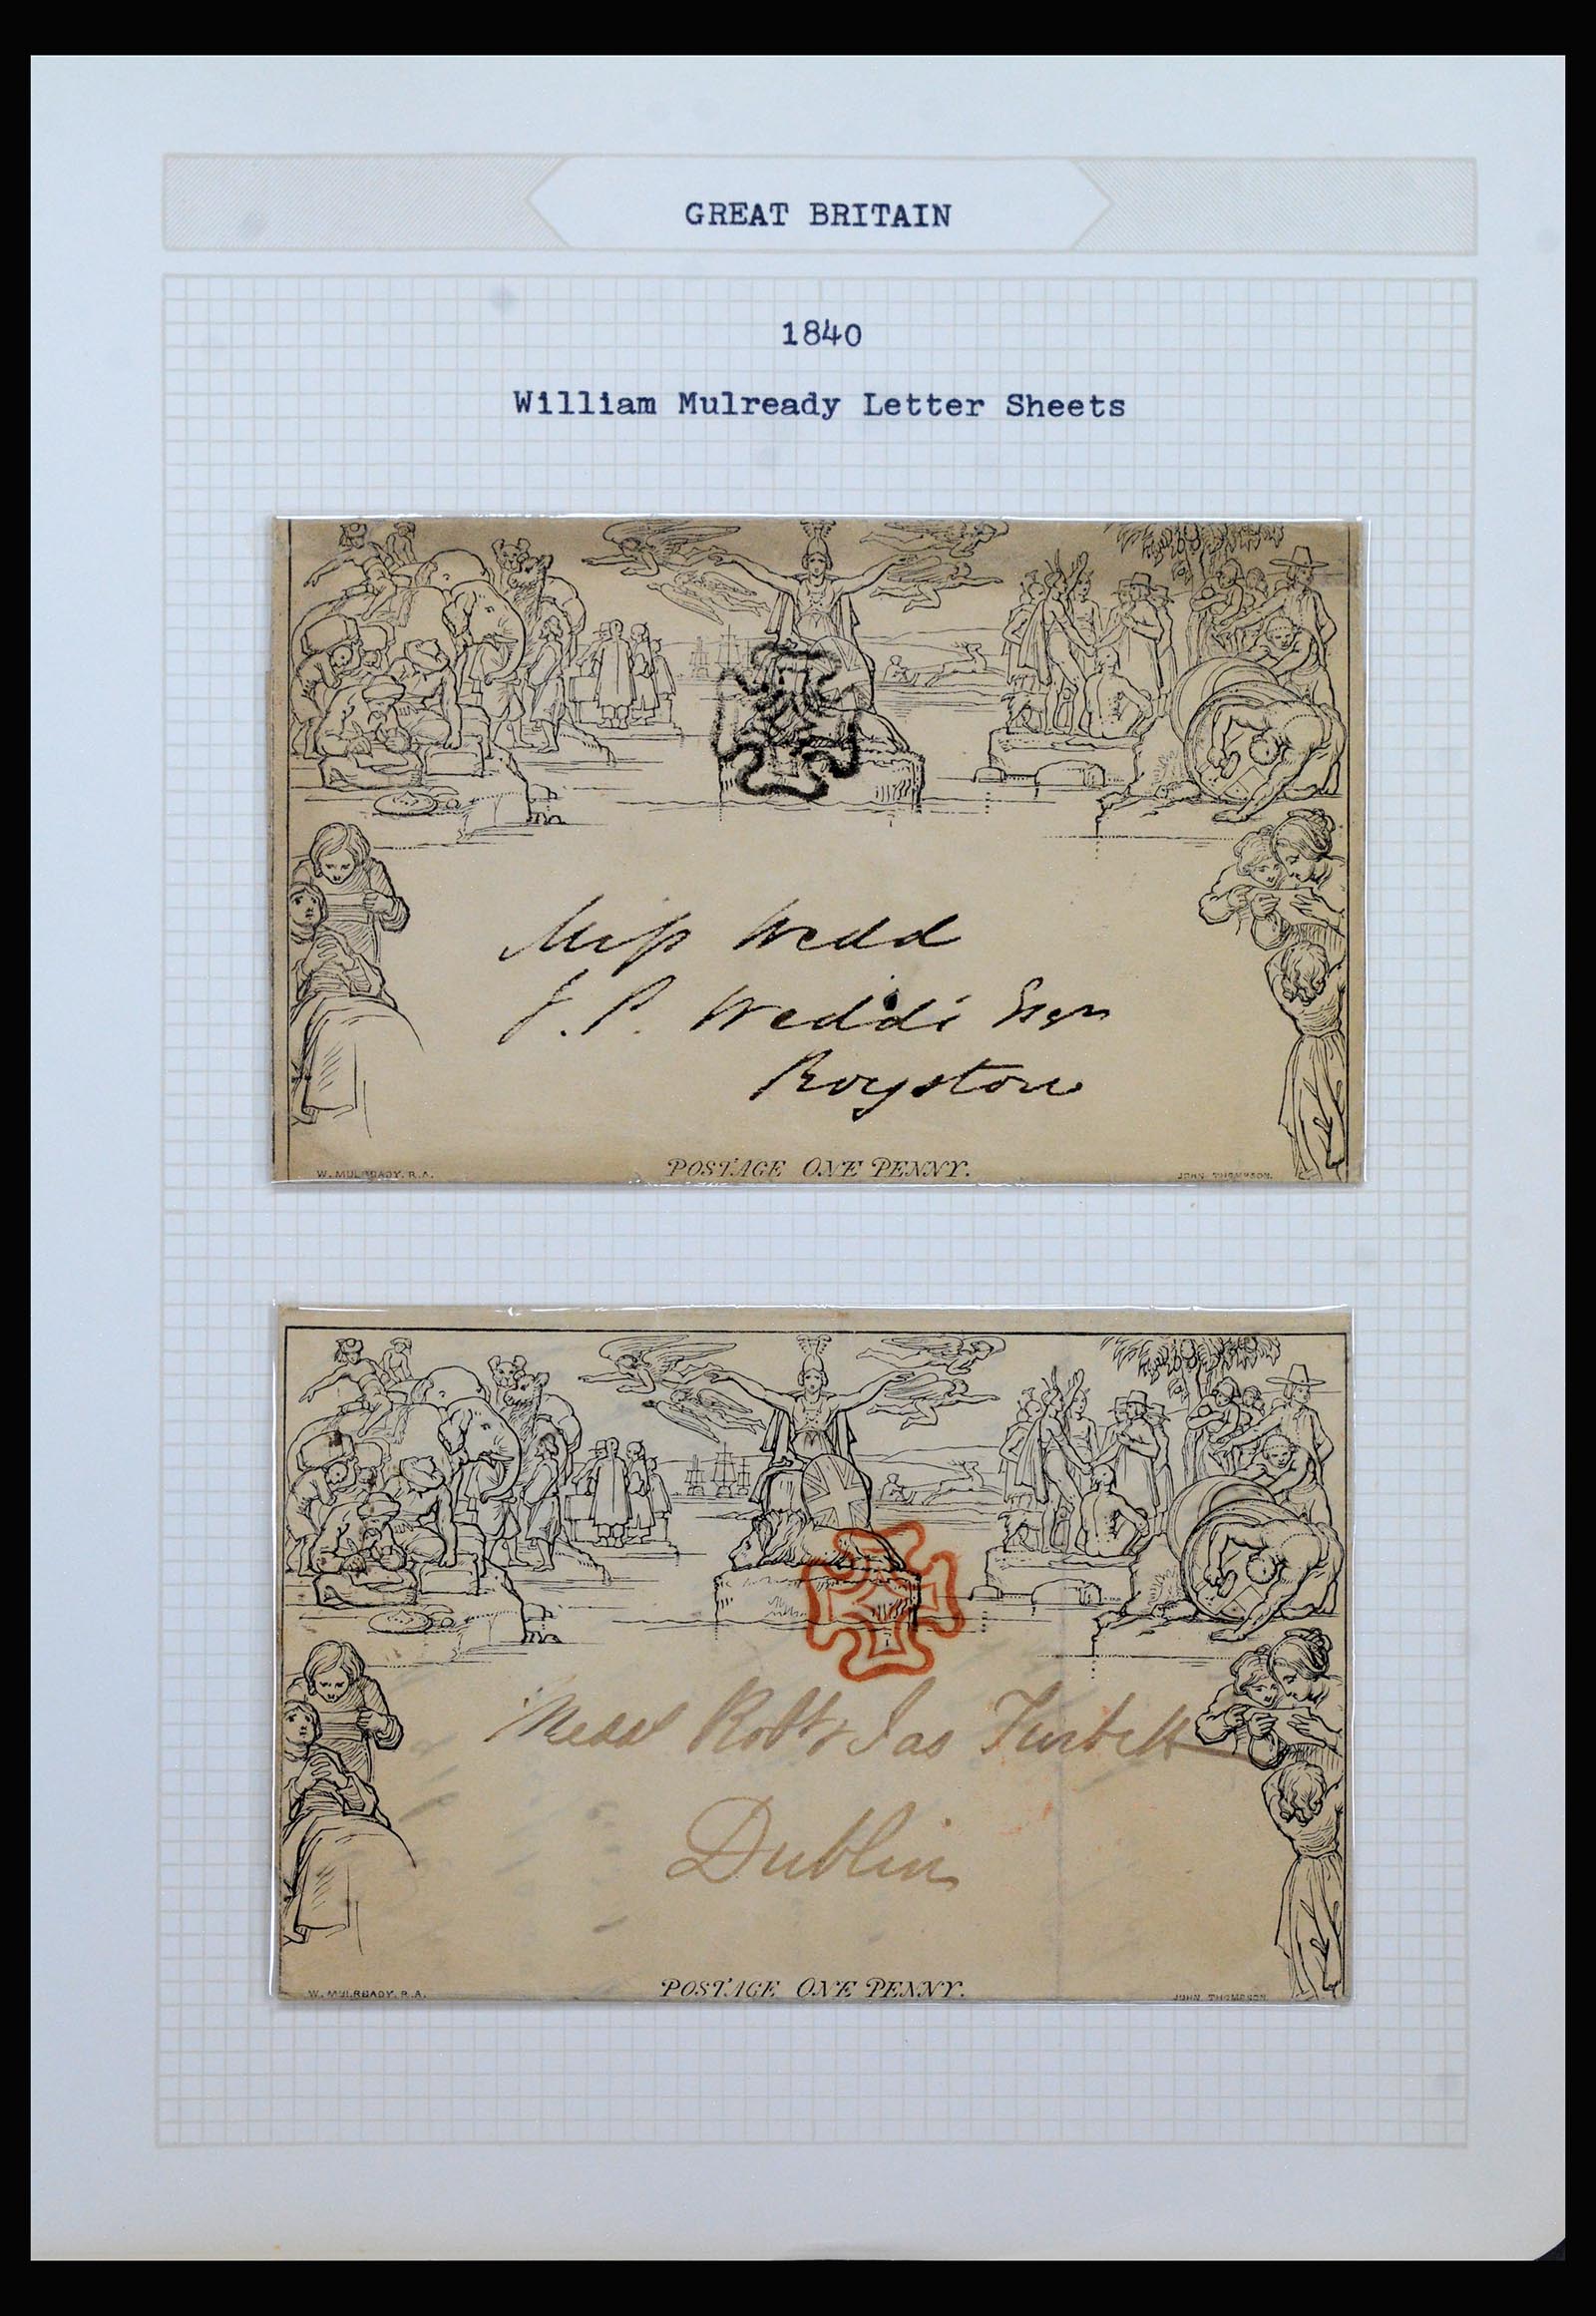 GREAT BRITAIN
1840
William Mulready Letter Sheets
Miss Wedd
J. P. Wedd's Esqr
Royston
W. MULREADY, R.A.
POSTAGE ONE PENNY.
JOHN THOMPSON.
Messrs Robt & Jas Turbett
Dublin
W. MULREADY. R.A.
POSTAGE ONE PENNY.
JOHN THOMPSON